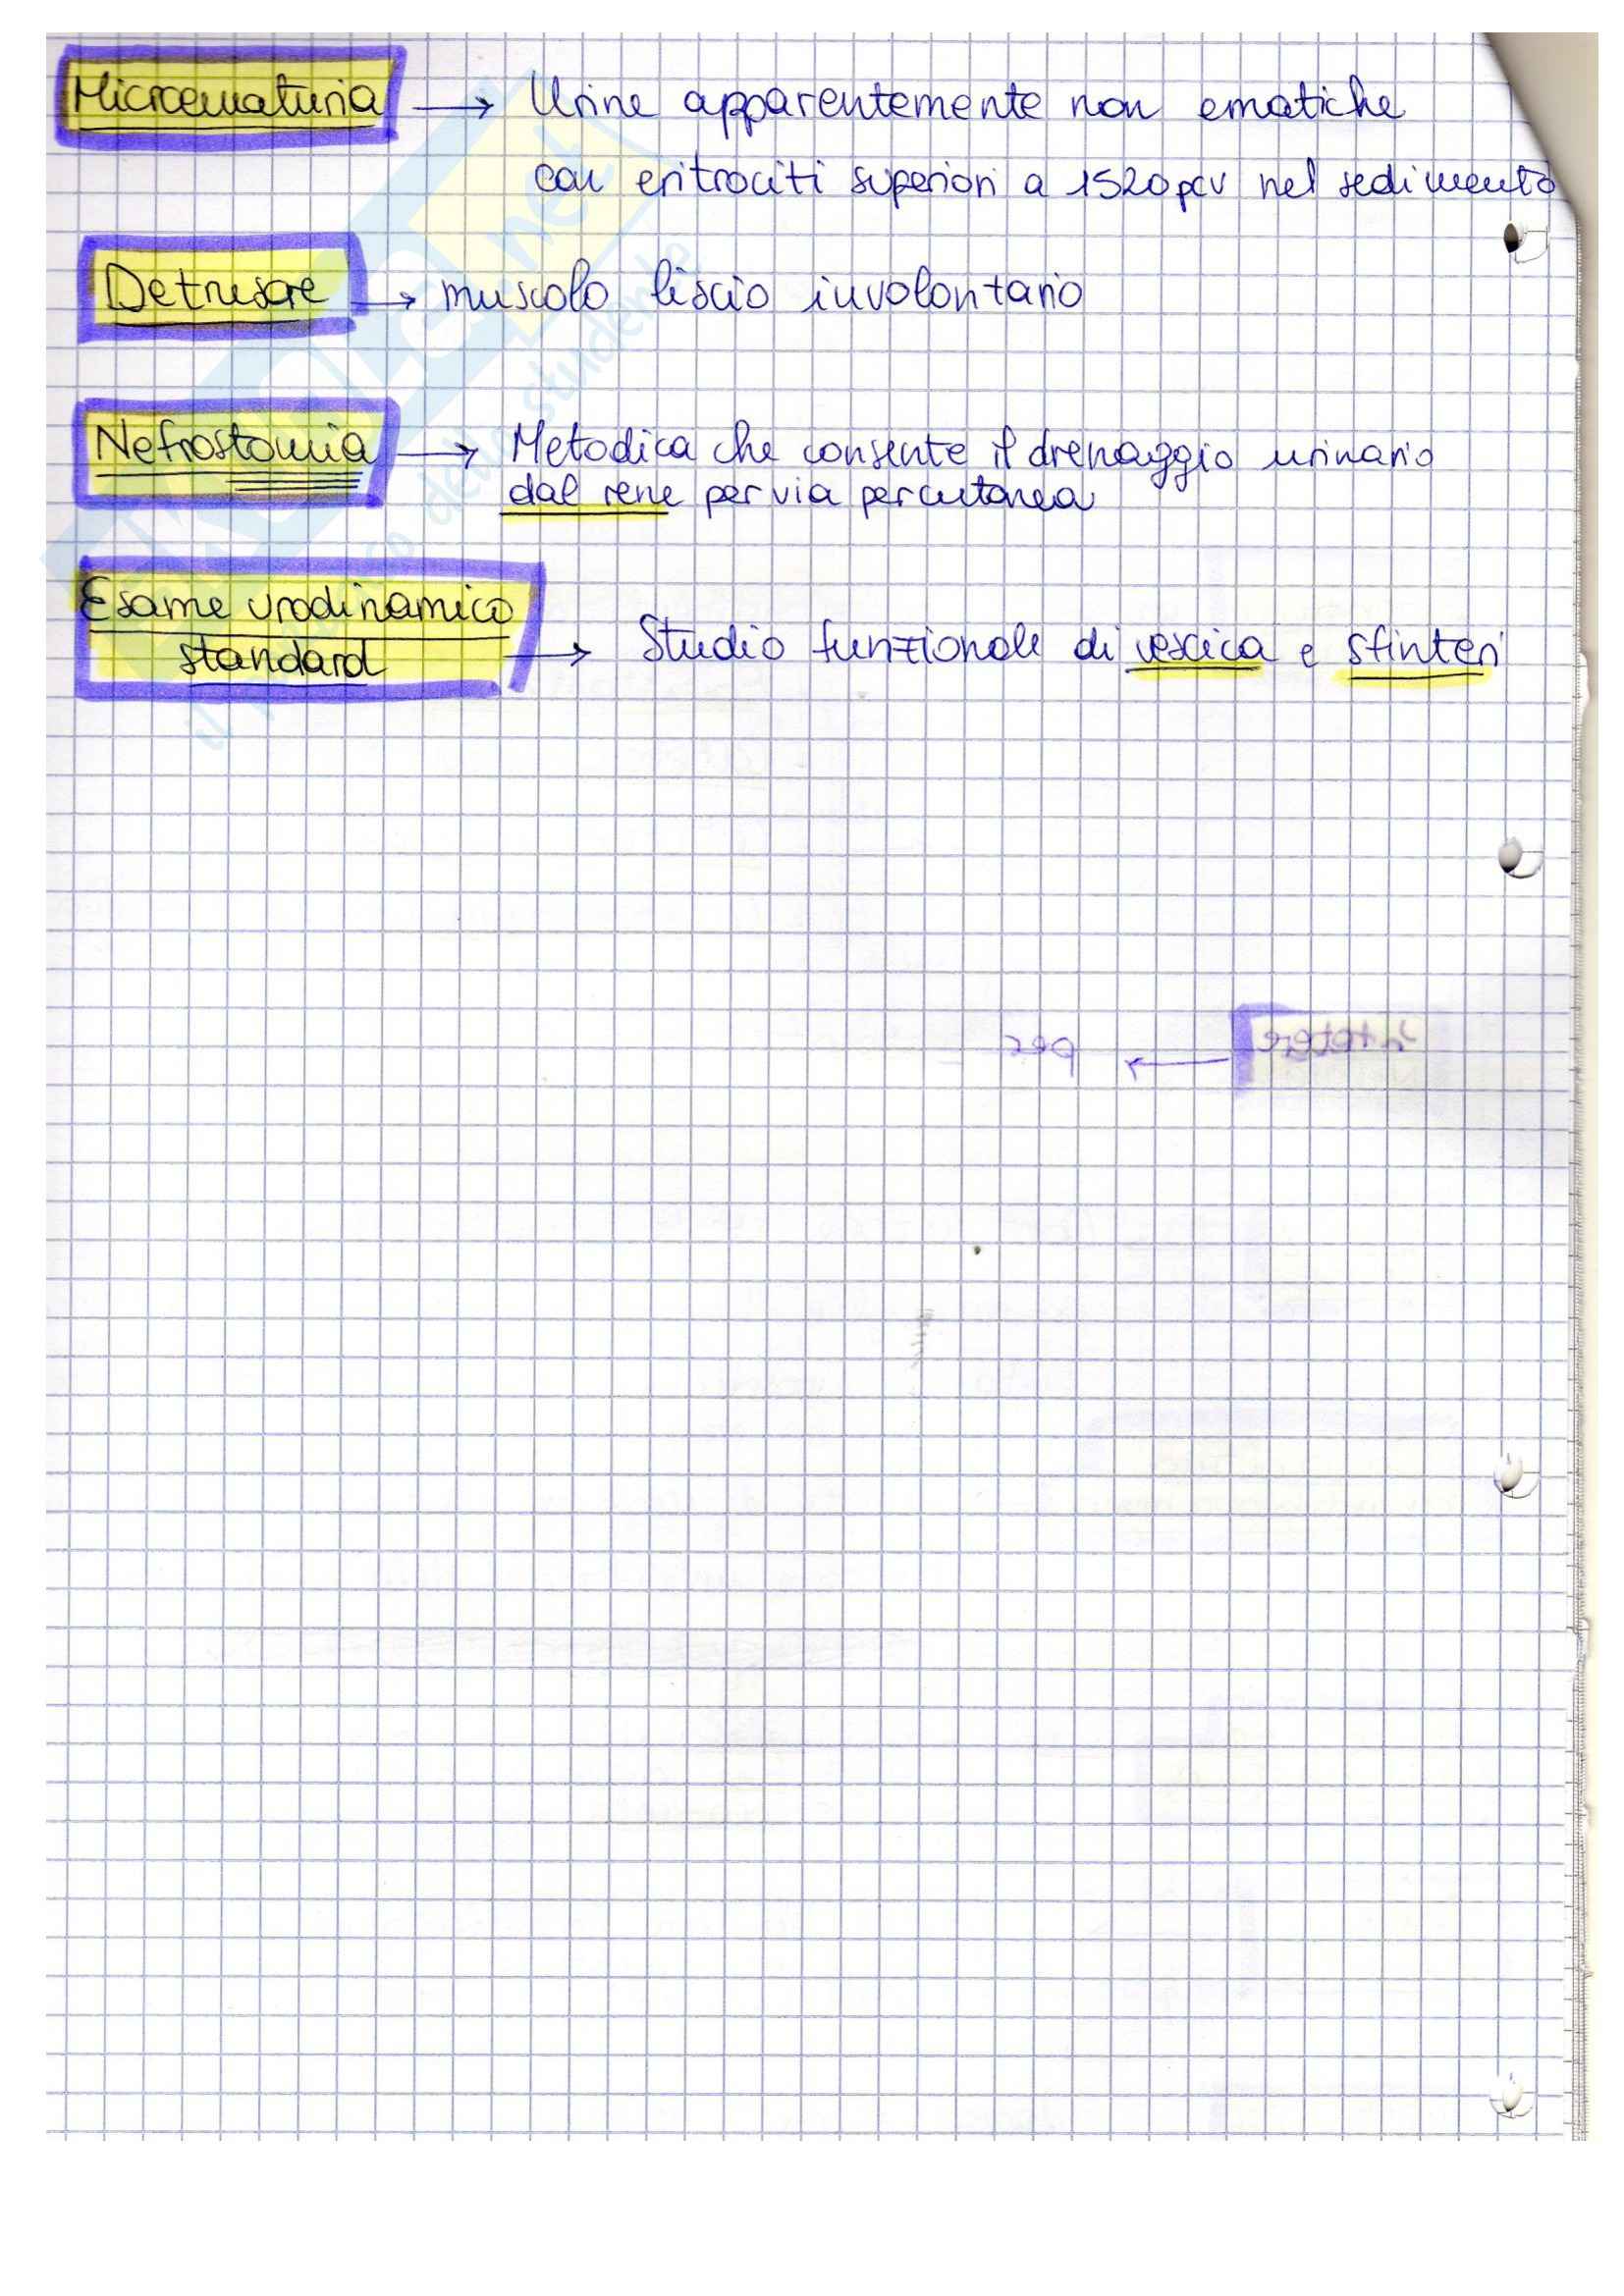 Microematuria → Urine apparentemente non ematiche
con eritrociti superiori a 1520 pcv nel sedimento
Detrusore → muscolo liscio involontario
Nefrostomia → Metodica che consente il drenaggio urinario
dal rene per via percutanea
Esame urodinamico
standard → Studio funzionale di vescica e sfinteri